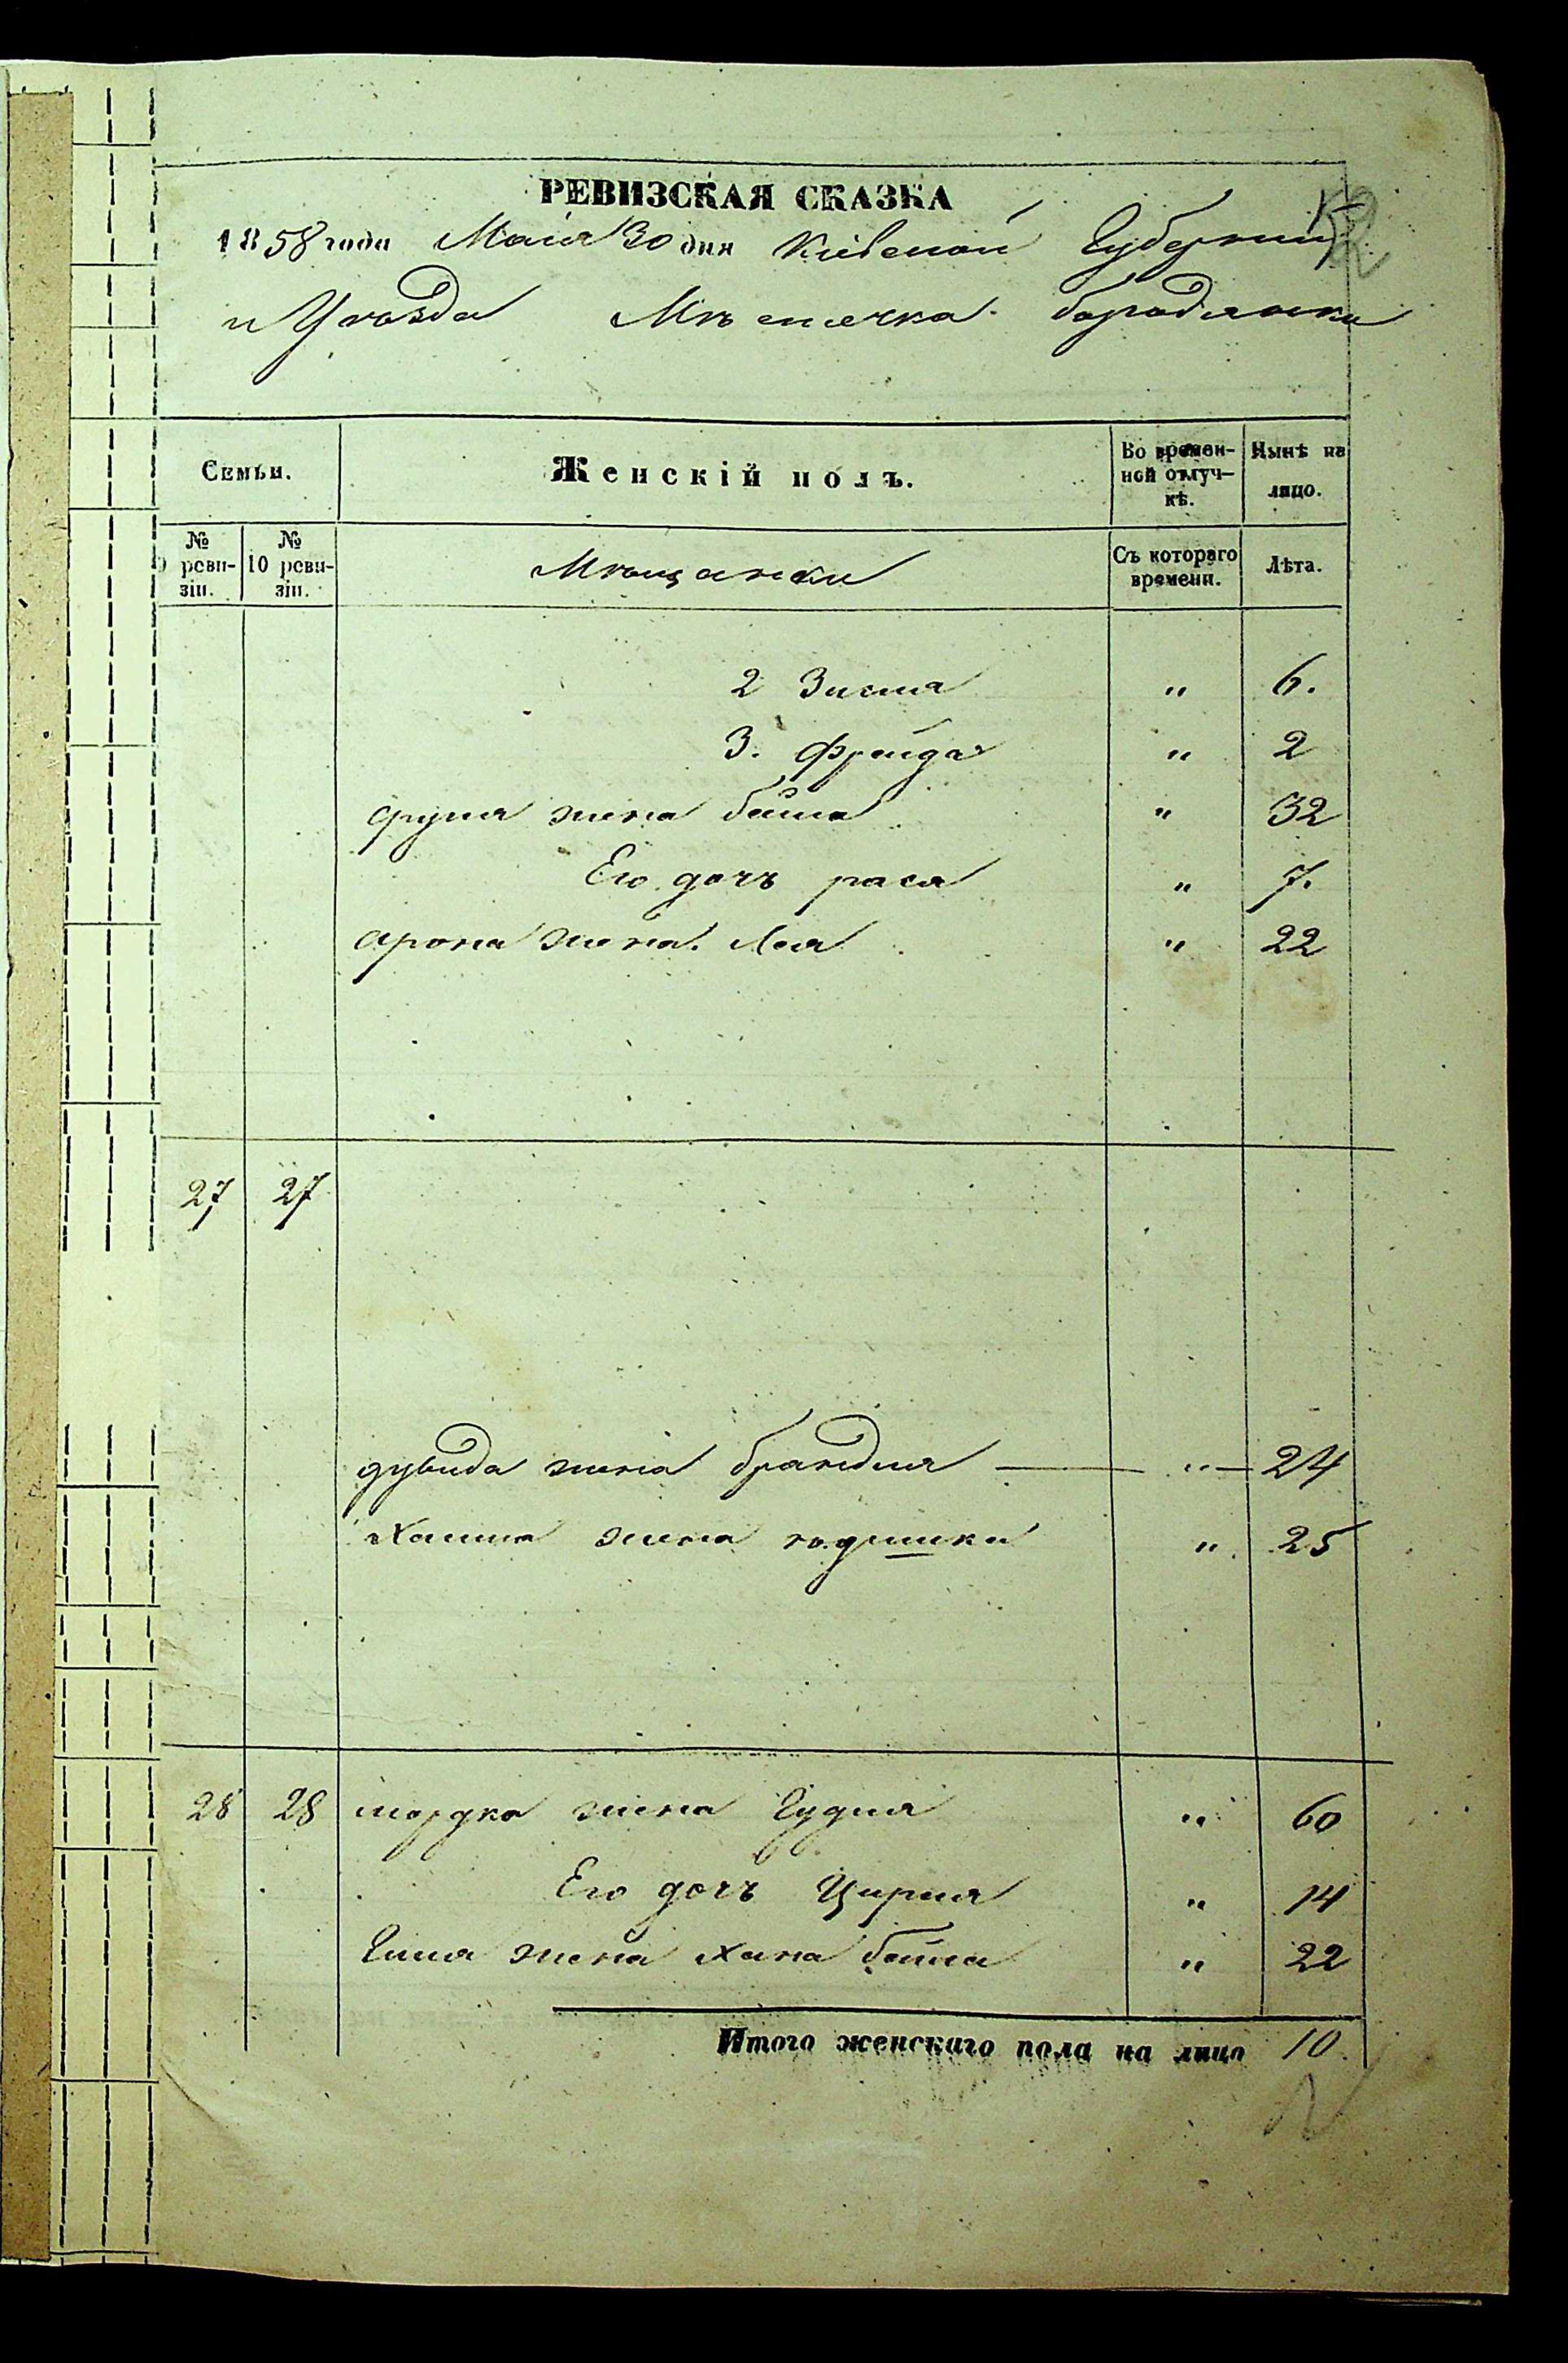 РЕВИЗСКАЯ СКАЗКА
1858 года Маія 30 дня Кіевской Губерніи
и Уѣзда Мѣстечка бородянки
Семьи. Женскій полъ. Во времен-ной отлуч-кѣ. Нынѣ на лицо.
№ 9 реви-зіи. № 10 реви-зіи. Мѣщанки Съ котораго времени. Лѣта.
2 Зисля " 6.
3. Фрейда " 2
жена бейла " 32
Его дочь рася " 7.
арона жена Лея " 22
27 27
дувида жена брандля " 24
Хаима жена " 25
28 28 мордка жена Гудля " 60
Его дочь Цирля " 14
жена Хана бейла " 22
Итого женскаго пола на лицо 10.